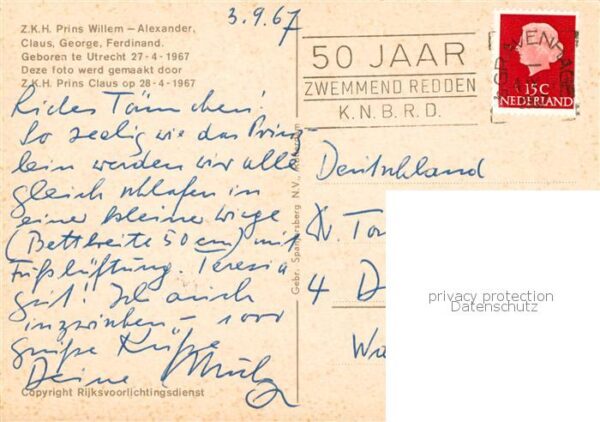 3.9.67
Z.K.H. Prins Willem – Alexander,
Claus, George, Ferdinand.
Geboren te Utrecht 27-4-1967
Deze foto werd gemaakt door
Z.K.H. Prins Claus op 28-4-1967
So seelig wie das Prinz-
lein werden wir alle
gleich schlafen in
einer kleinen Wiege
(Bettbreite 50 cm) mit
Fußlüftung. Teresia
gut! Ich auch
inzwischen – 1000
Küsse
Deine
Copyright Rijksvoorlichtingsdienst
Gebr. Spanjersberg N.V.,
50 JAAR
ZWEMMEND REDDEN
K.N.B.R.D.
'S-GRAVENHAGE
15C
NEDERLAND
Deutschland
4 D
privacy protection
Datenschutz